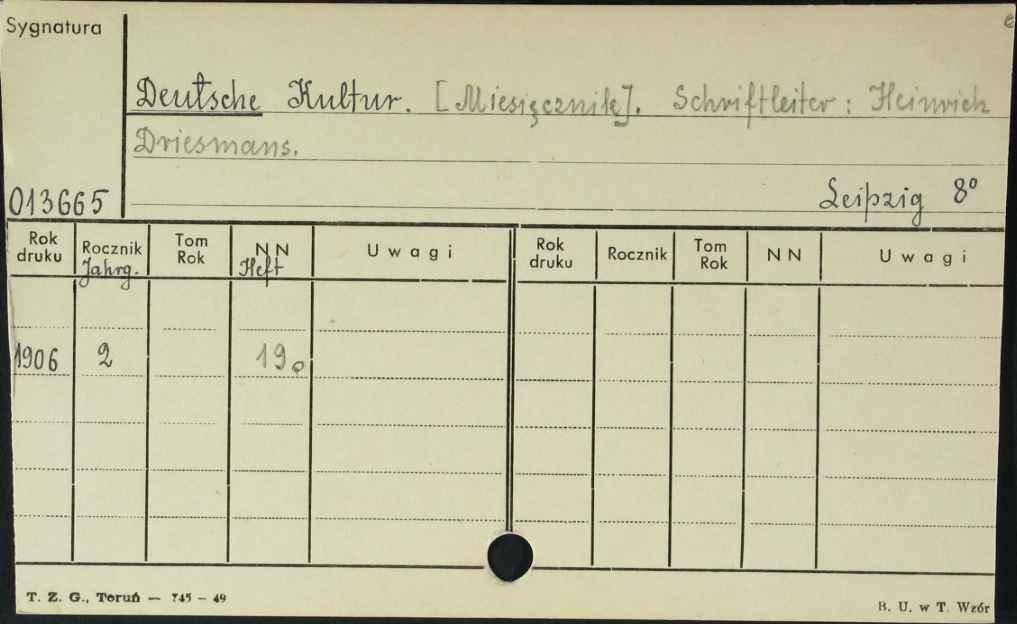 Sygnatura
Deutsche Kultur. [Miesięcznik]. Schriftleiter: Heinrich
Driesmans.
013665
Leipzig 8°
Rok druku Rocznik Jahrg. Tom Rok NN Heft Uwagi Rok druku Rocznik Tom Rok NN Uwagi
1906 2 19.
T. Z. G., Toruń — 745 – 49
B. U. w T. Wzór